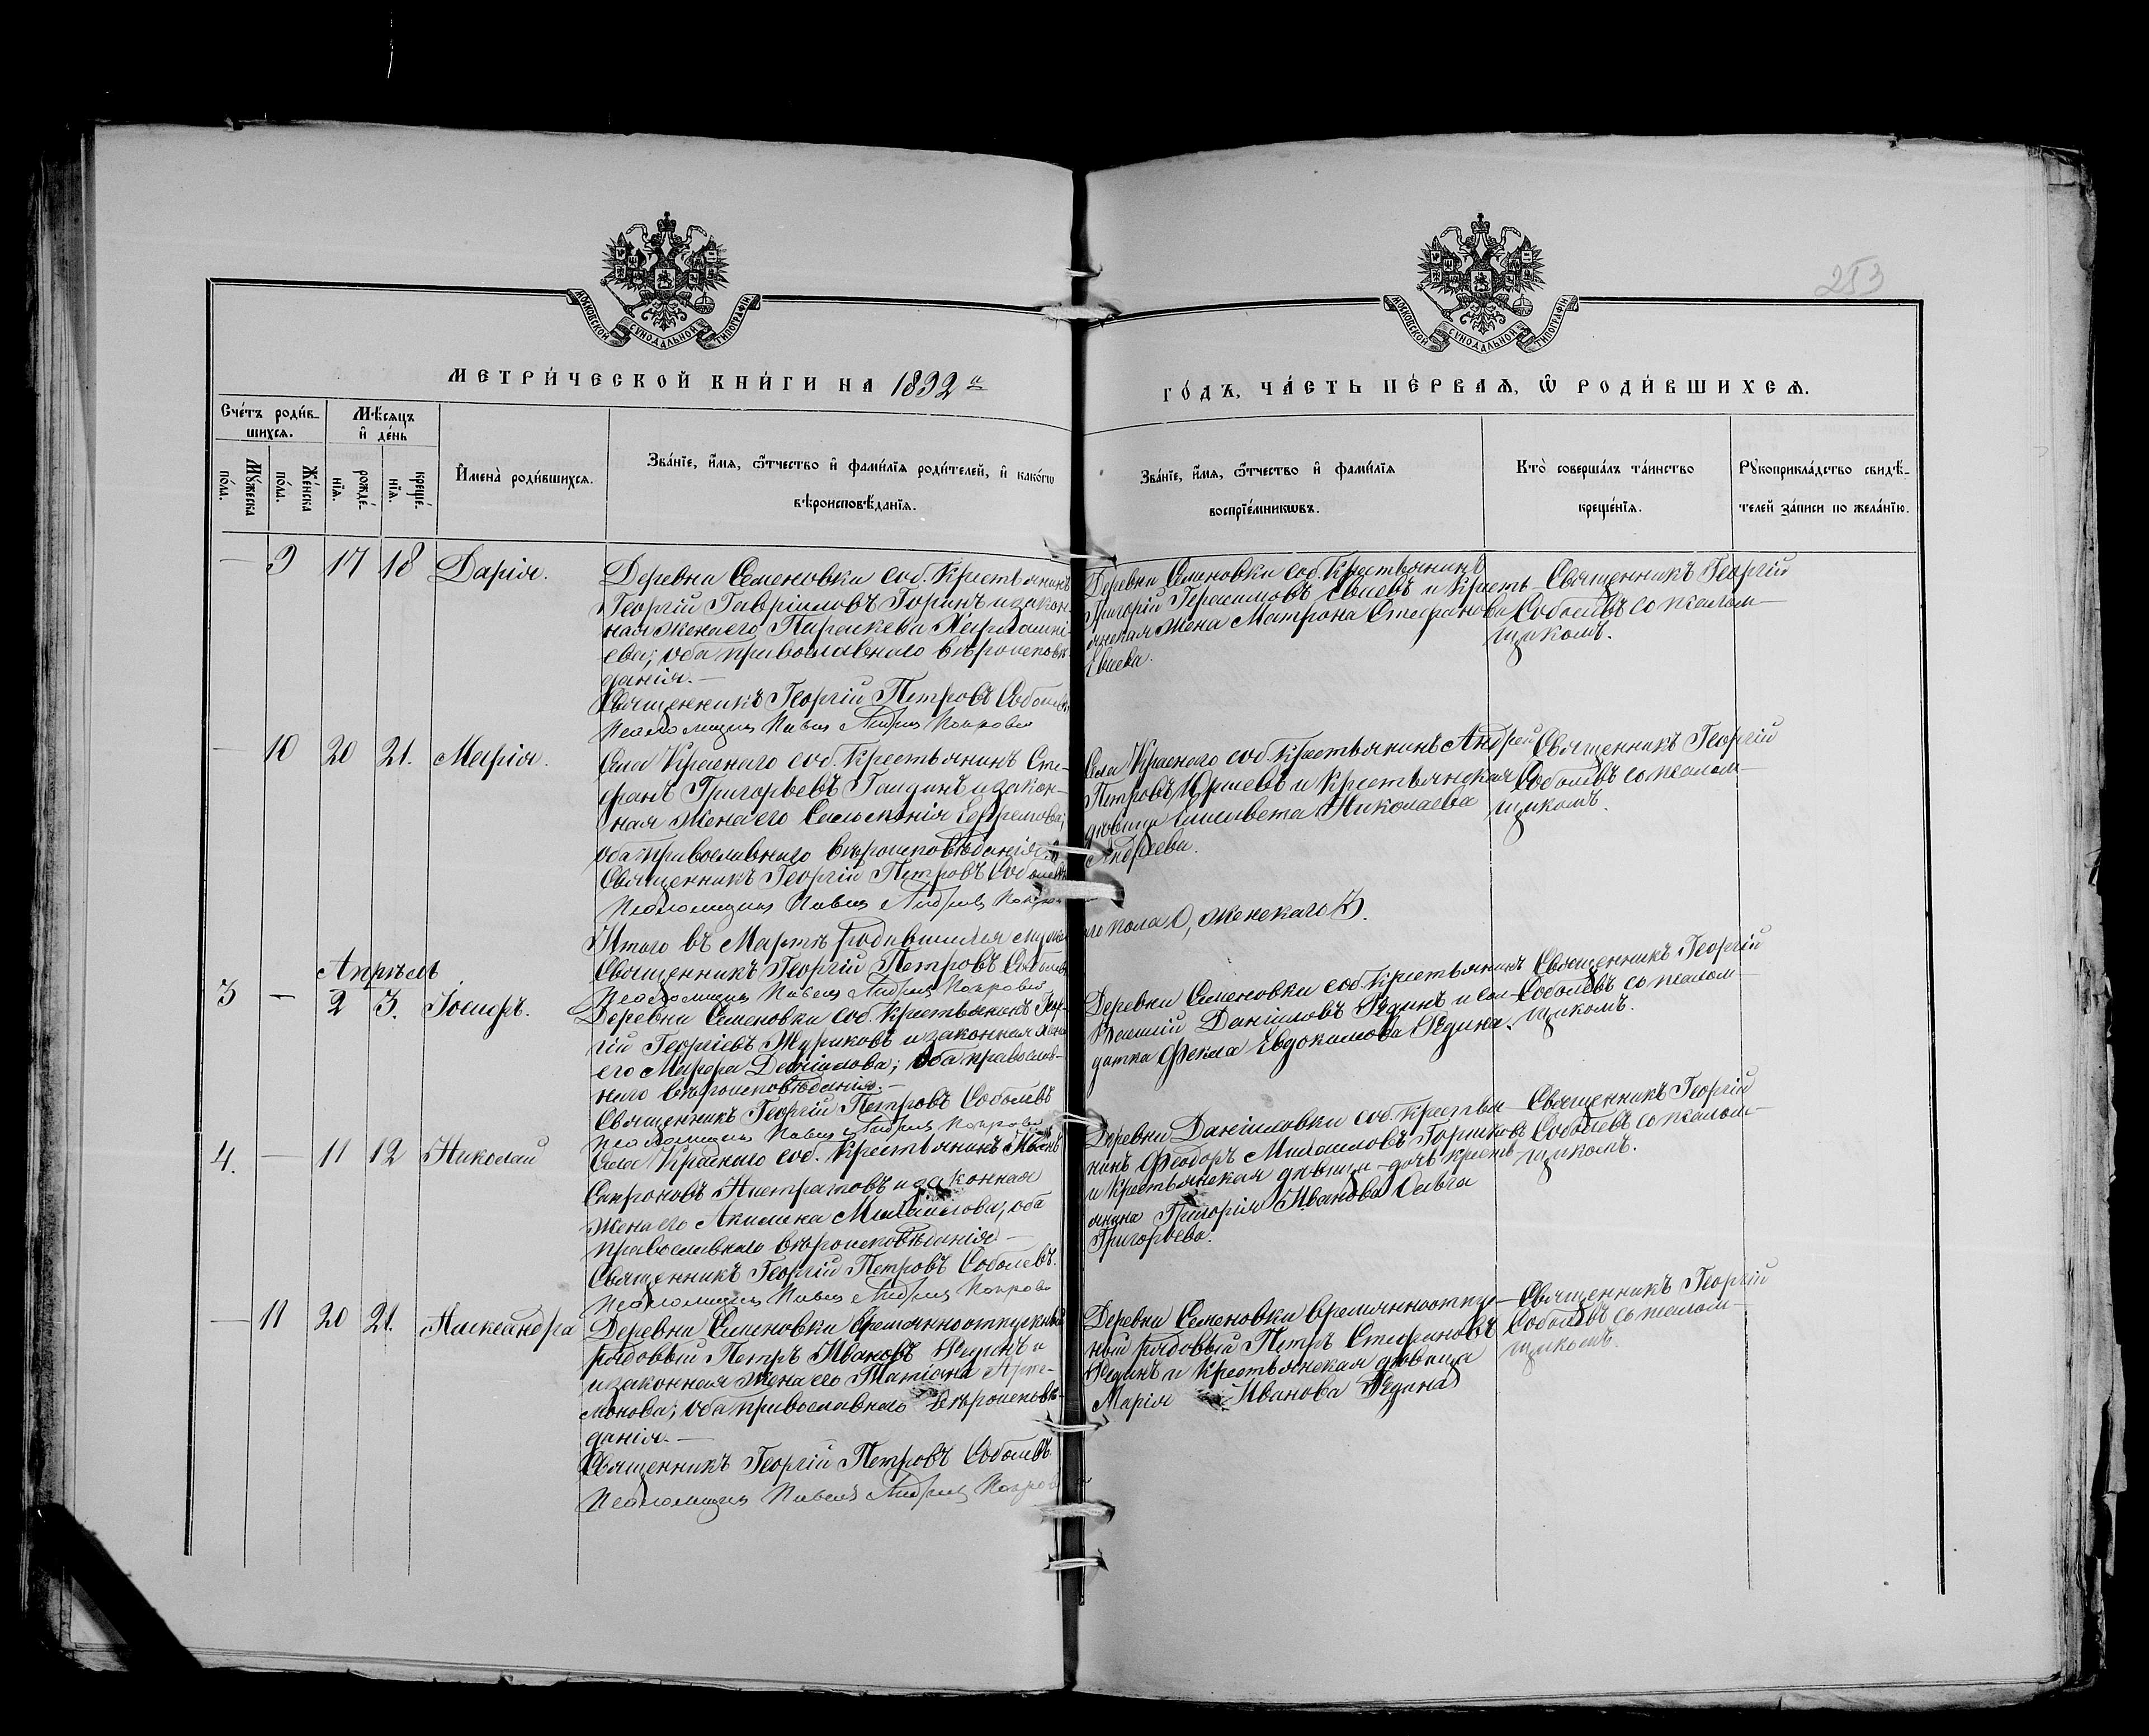 253
МОСКОВСКОЙ СѴНОДАЛЬНОЙ ТИПОГРАФІИ
МОСКОВСКОЙ СѴНОДАЛЬНОЙ ТИПОГРАФІИ
МЕТРИ́ЧЕСКОЙ КНИ́ГИ НА 1892 й
ГО́ДЪ, ЧА́СТЬ ПЕ́РВАѦ, Ѽ РОДИ́ВШИХСѦ.
Сче́тъ роди́в-
шихсѧ.
Мѣ́сѧцъ
и҆ де́нь
Мꙋ́жеска
по́ла.
Же́нска
по́ла.
рожде́-
нїѧ.
креще́-
нїѧ.
И҆мена̀ роди́вшихсѧ.
Зва́нїе, и҆́мѧ, ѻ҆́тчество и҆ фами́лїѧ роди́телей, и҆ како́гѡ
вѣроисповѣ́данїѧ.
Зва́нїе, и҆́мѧ, ѻ҆́тчество и҆ фами́лїѧ
воспрїе́мникѡвъ.
Кто̀ соверша́лъ та́инство
креще́нїѧ.
Рꙋкоприкла́дство свидѣ́-
телей за́писи по жела́нїю.
— 9 17 18 Дарія.
Деревни Семеновки соб. крестьянинъ
Георгій Гавріиловъ Горинъ и закон-
ная жена его Параскева
ева; оба православнаго вѣроисповѣ-
данія.—
Священникъ Георгій Петровъ Соболевъ
Псаломщикъ Павелъ Андреевъ Покров
Деревни Семеновки соб. крестьянинъ
Григорій Герасимовъ Евсеевъ и кресть-
янская жена Матрона Стефанова
Евсева.
Священникъ Георгій
Соболевъ со псалом-
щикомъ.
— 10 20 21. Марія.
Села Краснаго соб. крестьянинъ Сте-
фанъ Григорьевъ и закон-
ная жена его Саломонія Ефремова;
оба православнаго вѣроисповѣданія.
Священникъ Георгій Петровъ Соболевъ
Псаломщикъ Павелъ Андреевъ Покров
Села Краснаго соб. крестьянинъ Андрей
Петровъ и крестьянская
дѣвица Елисавета Николаева
Андреева.
Священникъ Георгій
Соболевъ со псалом-
щикомъ.
Итого въ Мартѣ родившихся мужес
го пола 0, женскаго 3.
Священникъ Георгій Петровъ Соболевъ
Псаломщикъ Павелъ Андреевъ Покров
Апрѣль
3 — 2 3. Іосифъ.
Деревни Семеновки соб. крестьянинъ Геор-
гій Георгіевъ Журиковъ и законная жена
его Марфа Даніилова; оба православ-
наго вѣроисповѣданія.—
Священникъ Георгій Петровъ Соболевъ
Псаломщикъ Павелъ Андреевъ Покров
Деревни Семеновки соб. крестьянинъ
Василій Даніиловъ Рединъ и сол-
датка Фекла Евдокимова Редина.
Священникъ Георгій
Соболевъ со псалом-
щикомъ.
4. — 11 12 Николай
Села Краснаго соб. крестьянинъ Иванъ
Сафроновъ и законная
жена его Акилина Михаилова; оба
православнаго вѣроисповѣданія—
Священникъ Георгій Петровъ Соболевъ.
Псаломщикъ Павелъ Андреевъ Покров
Деревни Даниловки соб. крестья-
нинъ Феодоръ Михаиловъ Горшковъ
и крестьянская дѣвица - дочь кресть-
янина Григорія Иванова Ольга
Григорьева.
Священникъ Георгій
Соболевъ со псалом-
щикомъ.
— 11 20 21. Александра
Деревни Семеновки временноотпускный
рядовый Петръ Ивановъ Рединъ и
и законная жена его Татіана Арте-
монова; оба православнаго вѣроисповѣ-
данія.—
Священникъ Георгій Петровъ Соболевъ
Псаломщикъ Павелъ Андреевъ Покров
Деревни Семеновки временноотпу-
ный рядовый Петръ Стефановъ
Рединъ и крестьянская дѣвица
Марія Иванова Редина
Священникъ Георгій
Соболевъ со псалом-
щикомъ.